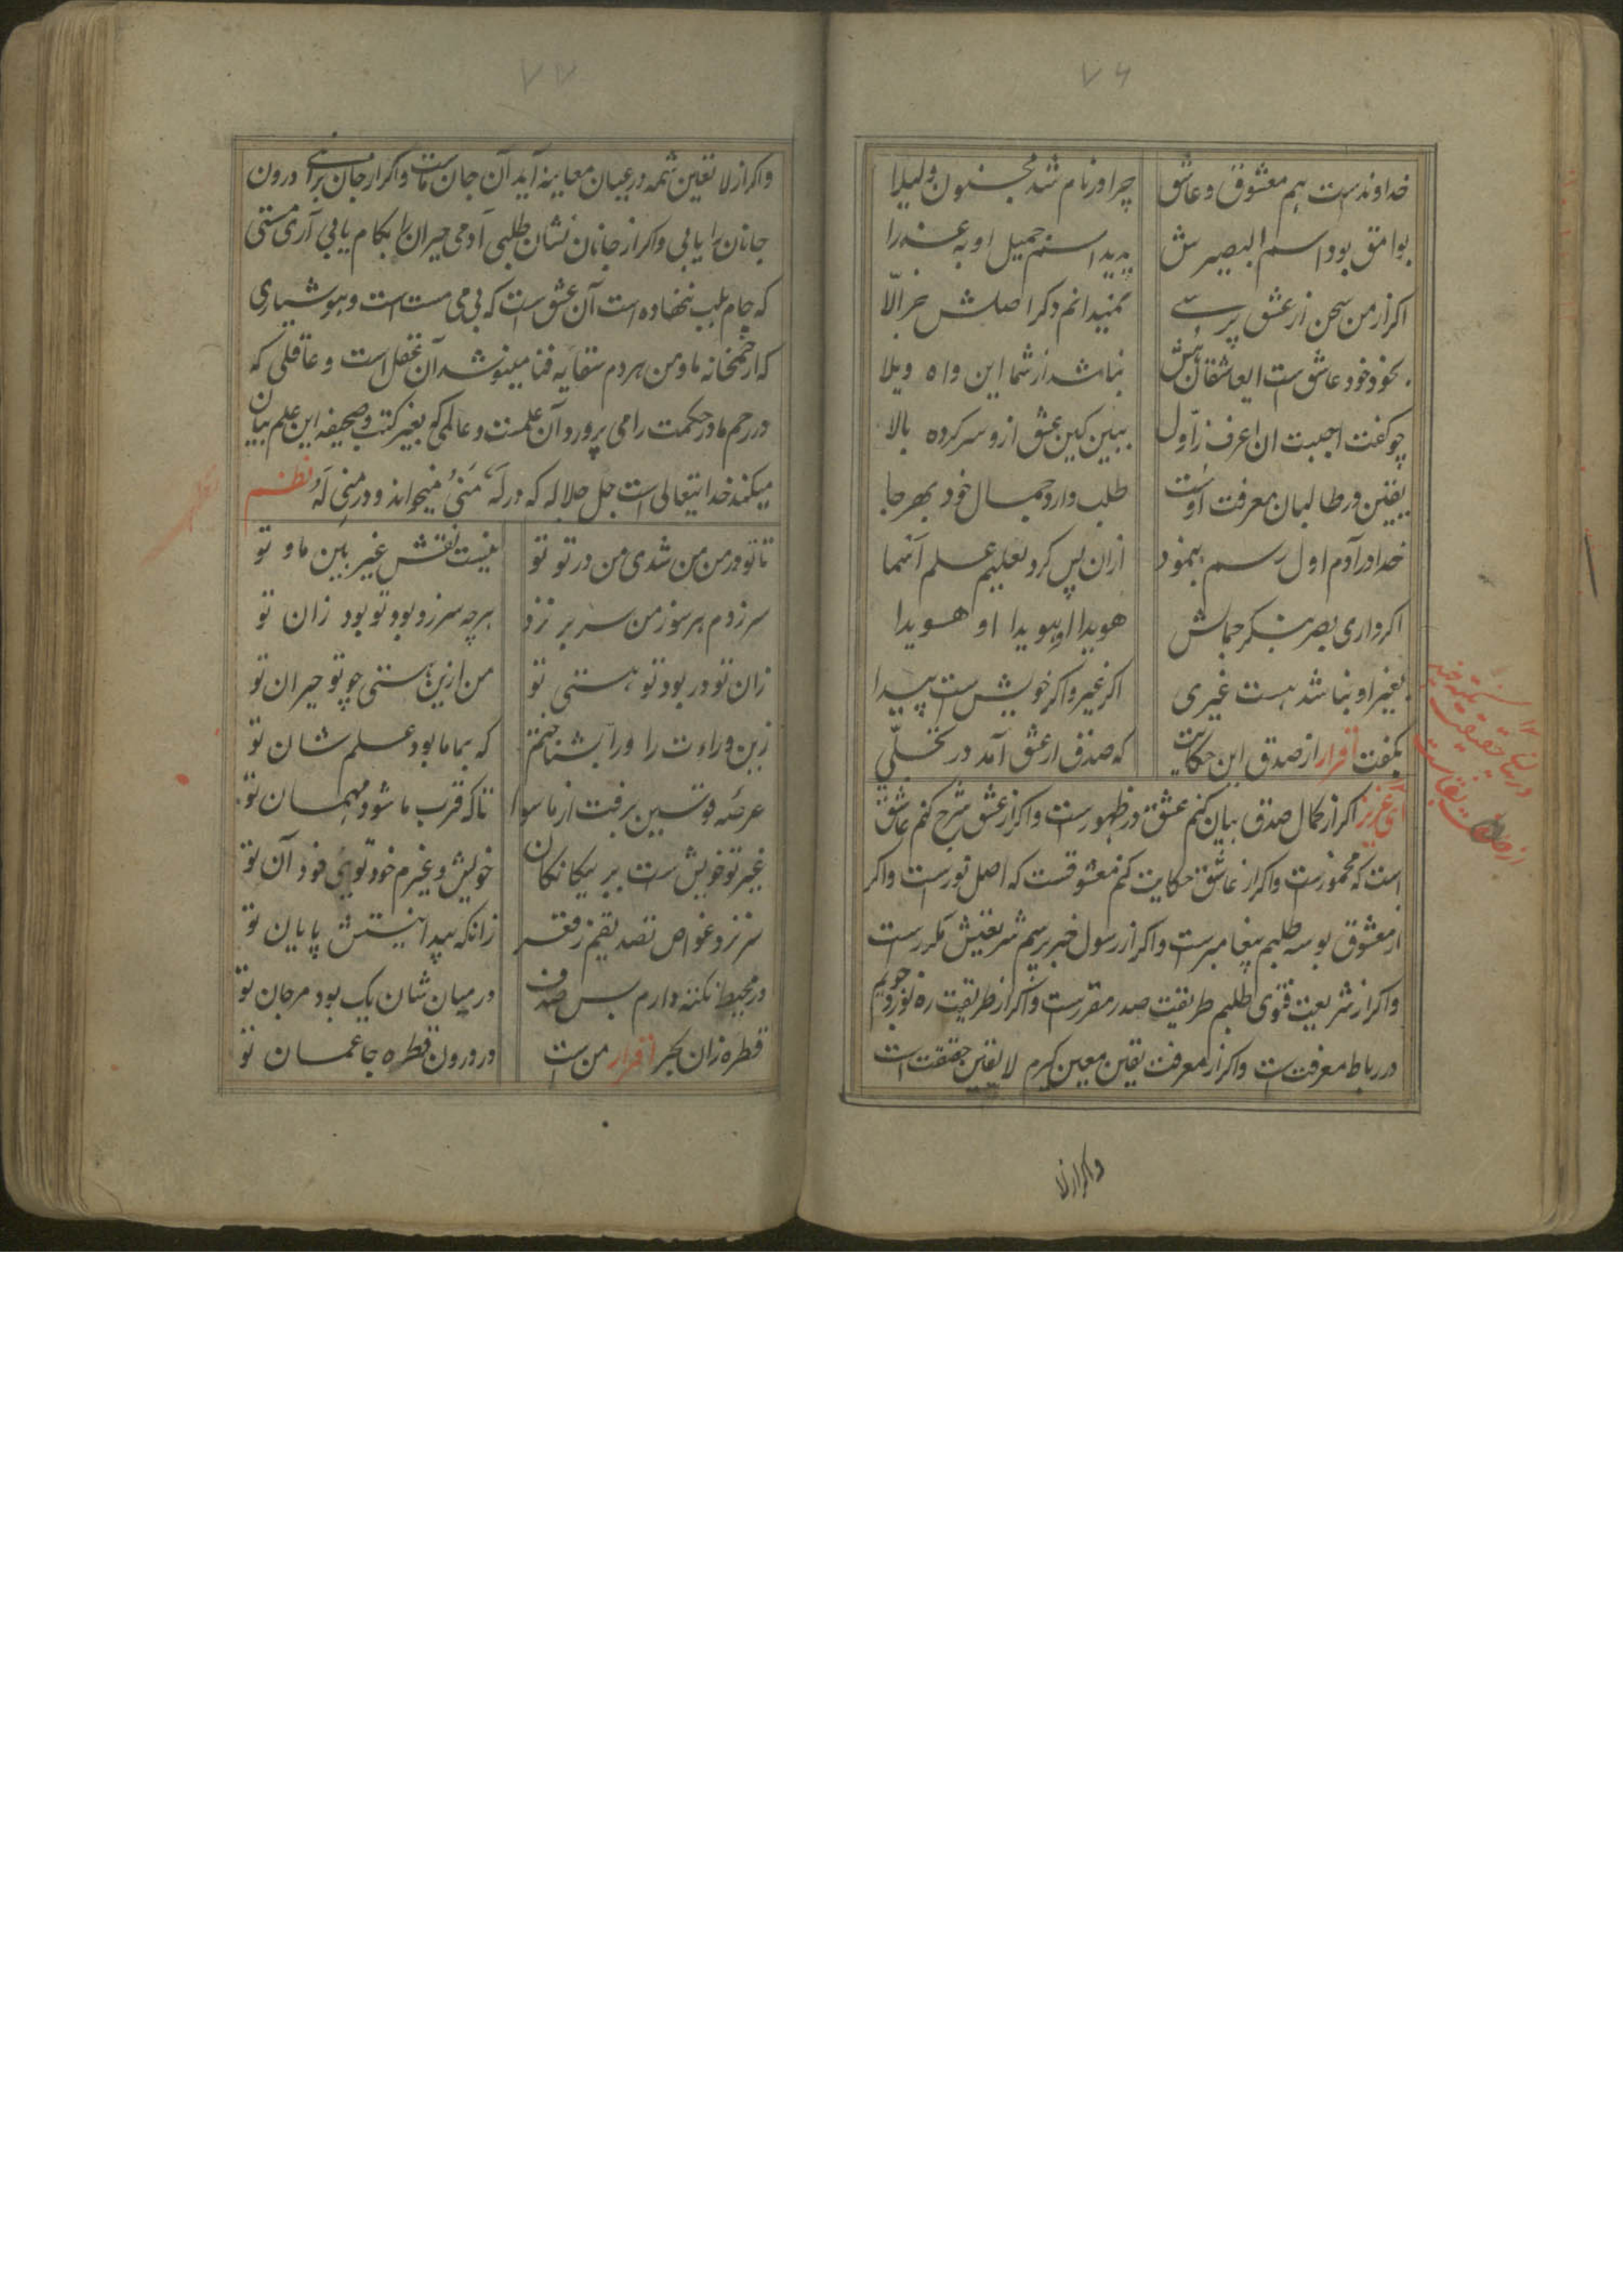 ۷۶
خداوندست هم معشوق و عاشق چرا در نام شد مجنون و لیلا
بوامق بود اسم البصیرش پدید اسم جمیل او به عذرا
اکر از من سخن از عشق پرسے نمیدانم دکر اصلش جز الّا
بخود خود عاشق ست ایعاشقان نباشد از شما این واه ویلا
چو کفت احببت ان اعرف ز اول ببین کین عشق ازو سر کرده بالا
یقین در طالبان معرفت اوست طلب دارد جمال خود بهر جا
خدا در آدم اول رسم بنمود ازان پس کرد تعلیم علم آنها
اکر داری بصر بنکر جمالش هویدا او هویدا او هویدا
بغیر او نباشد هست غیری اکر غیر و اکر خویش ست پیدا
بکفت اقرار از صدق این حکایت که صدق از عشق آمد در تجلّی
ای عزیز اکر از کمال صدق بیان کنم عشق در ظهورست و اکر از عشق شرح کنم عاشق
است که مخمورست و اکر از عاشق حکایت کنم معشوقست که اصل نورست و اکر
از معشوق بوسه طلبم پیغامبرست و اکر از رسول خبر پرسم شریعتش مکررست
و اکر از شریعت فتوی طلبم طریقت صدر مقررست و اکر از طریقت ره نوردم جویم
در رباط معرفت ست و اکر از معرفت یقین معین کیرم لا یقین حقیقت است
و اکر از لا
۷۷
و اکر از لا تعین شمه در عیان معاینه آید آن جان ماست و اکر از جان برآے درون
جانان را یابی و اکر از جانان نشان طلبی آدمی حیران را بکام یابی آری مستی
که جام بلب ننهاده است آن عشق است که بی می مست است و هوشیاری
که از خمخانه ما و من هردم سقایه فنا مینوشد آن عقل است و عاقلی که
در رحم مادر حکمت را می پرورد آن علمست و عالمی که بغیر کتب و صحیفه این علم بیان
میکند خدایتعالی است جل جلاله که در لَهُ مَنی میخواند و در منی لَهُ نظم
تا تو در من من شدی من در تو تو نیست نقش غیر بین ما و تو
سر زدم بر سوز من سر بر زد هرچه سر زد بود تو بود زان تو
زان تو در بود تو هستی تو من ازین هستی چو تو حیران تو
زین وراءت را ورا بشناختم که بما ما بود علم شان تو
عرصهٔ قوسین برفت از ما سوا تا که قرب ما شود مهمان تو
غیر تو خویش ست بر بیکانکان خویش و غیرم خود توئی فرد آن تو
سر نزد غواص تصدیقم ز قعر زانکه پیدا نیستش پایان تو
در محیط نکته دارم بس صدف در میان شان یک بود مرجان تو
قطره زان بحر اقرار من ست در درون قطره جا عمان تو